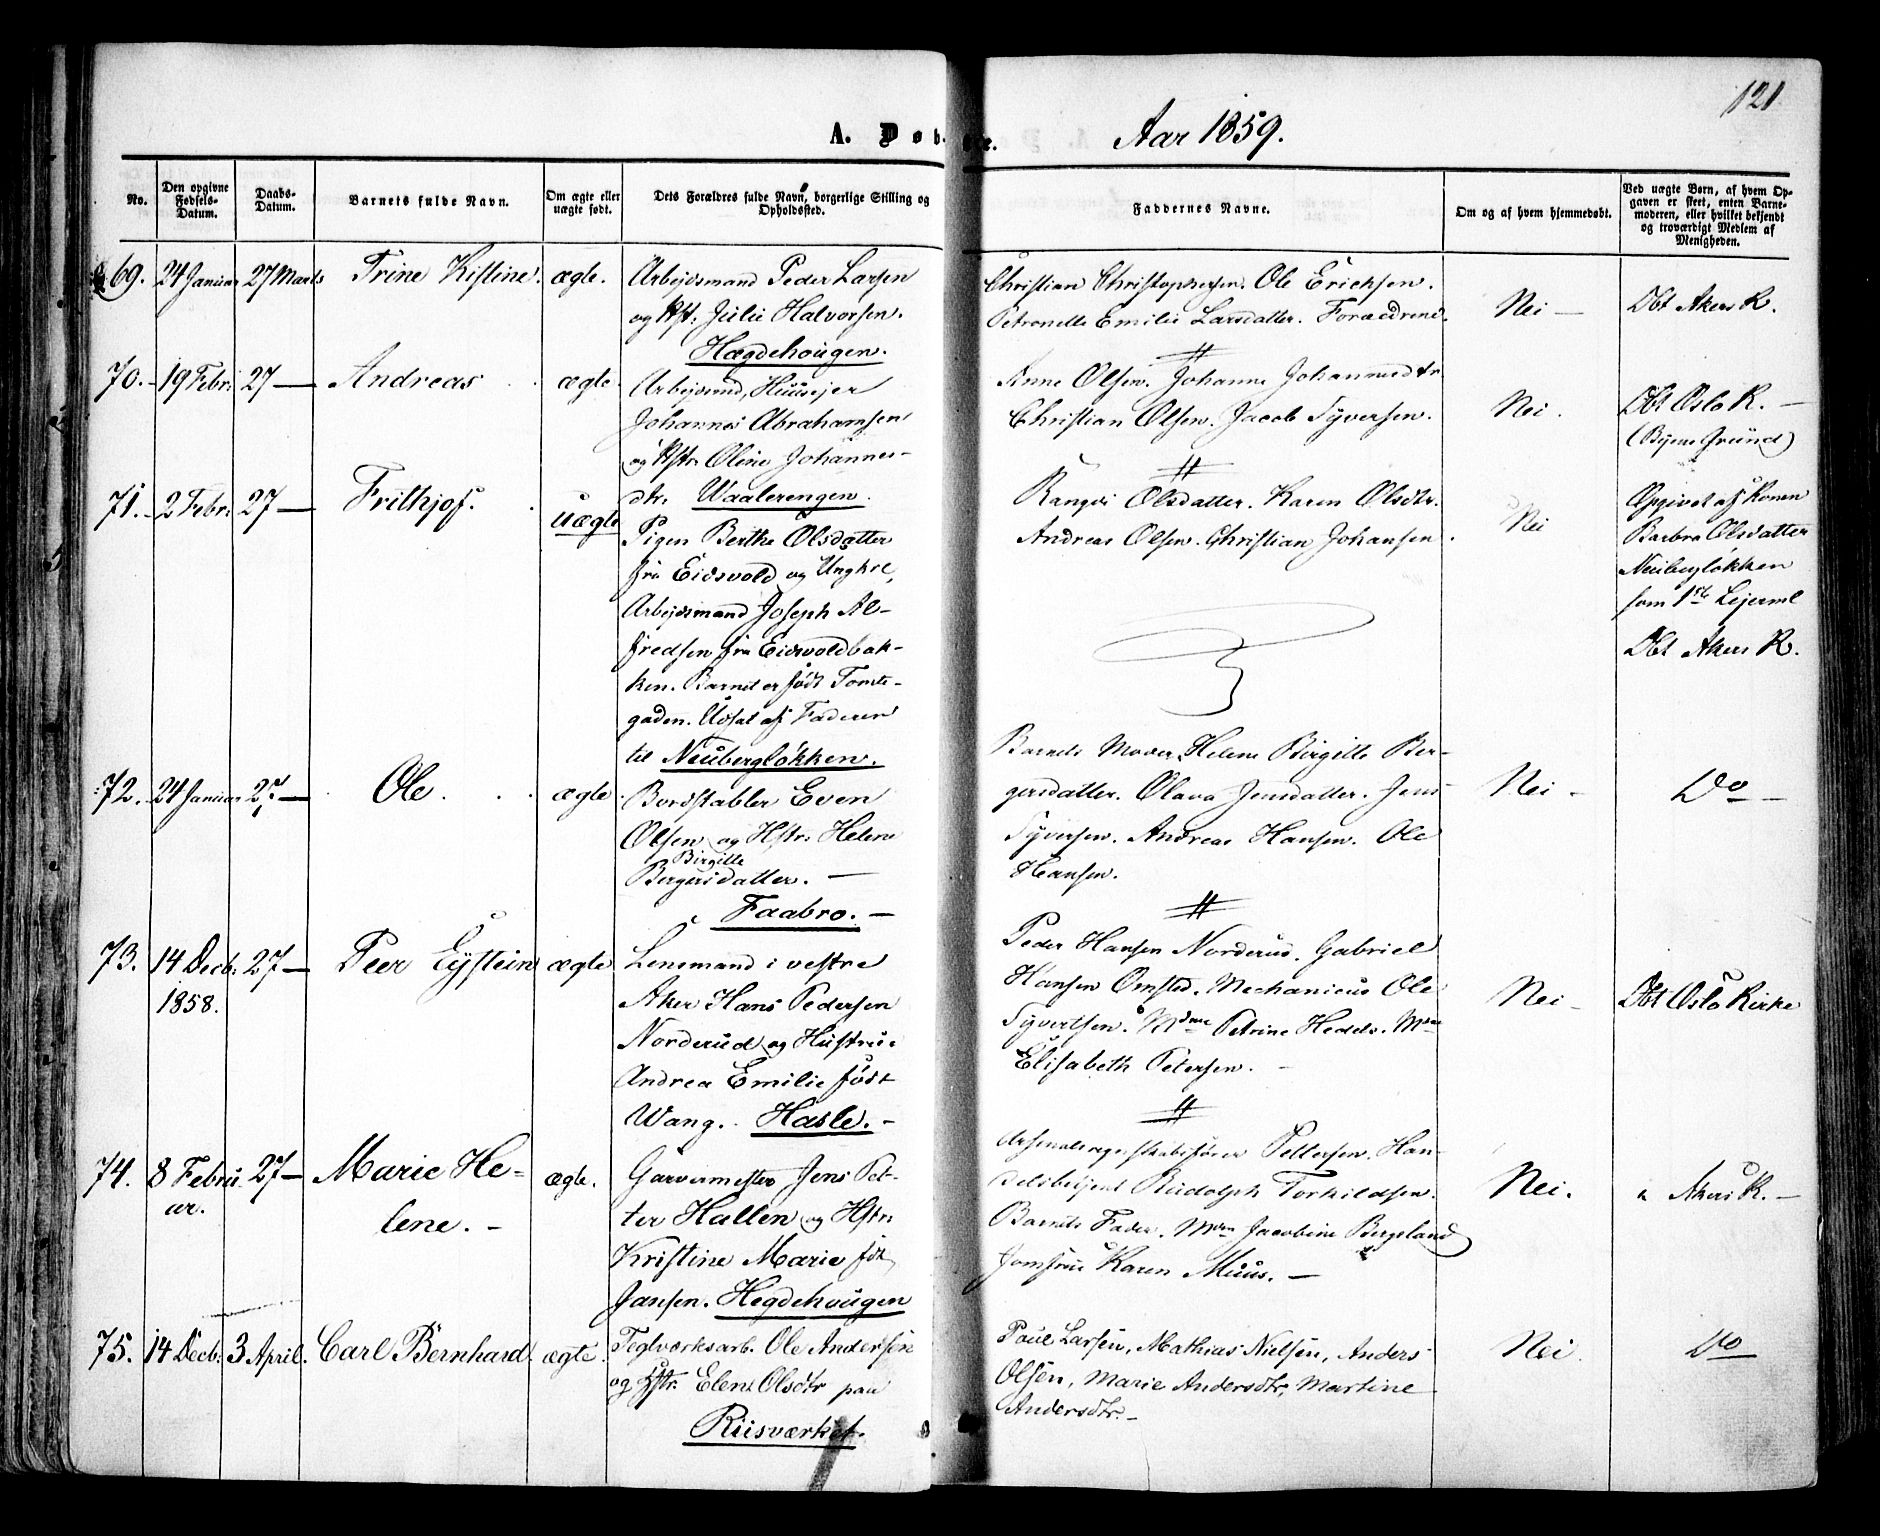 121
A. Døb- te. Aar 1859.
No.
Den opgivne
Fødsels-
Datum.
Daabs-
Datum.
Barnets fulde Navn.
Om ægte eller
uægte født.
Dets Forældres fulde Navn, borgerlige Stilling og
Opholdssted.
Faddernes Navne.
Om og af hvem hjemmedøbt.
Ved uægte Børn, af hvem Op-
gaven er skeet, enten Barne-
moderen, eller hvilket bekjendt
og troværdigt Medlem af
Menigheden.
69. 24 Januar 27 Marts Trine Kistine. ægte.
Arbejdsmand Peder Larsen
og Hst: Julie Halvorsen.
Hægdehougen.
Christian Christophersen. Ole Ericksen.
Petronelle Emilie Larsdatter. Forældrene.
Nei —
Dbt Akers K.
70. 19 Febr: 27 — Andreas ægte.
Arbejdsmd, Huusejer
Johannes Abrahamsen
og Hstr: Oline Johannes-
dtr. Waalerengen.
Anne Olsen. Johanne Johannesdtr
Christian Olsen. Jacob Syversen.
Nei.
Dbt Oslo K. —
(Byens Grund)
71. 2 Febr: 27 — Frithjof. uægte
Pigen Berthe Olsdatter
fra Eidsvold og Ungkrl,
Arbejdsmand Joseph Al-
fredsen fra Eidsvoldbak-
ken. Barnet er født Tomte-
gaden. Udsat af Faderen
til Neubergløkken.
Rangvi Olsdatter. Karen Olsdtr.
Andreas Olsen. Christian Johansen.
Nei
Opgivet af Konen
Barbra Olsdatter
Neubergløkken
som 1ste Lejerml
Dbt Akers K.
72. 24 Januar 27 — Ole. ægte
Bordstabler Even
Olsen og Hstr: Helene
Birgitte
Bergersdatter. —
Faabro. —
Barnets Moder, Helene Birgitte Ber-
gersdatter. Olava Jensdatter. Jens
Syversen. Andreas Hansen. Ole
Hansen.
Nei —
Do —
73. 14 Decb: 27 — Peer Eystein ægte
1858.
Lensmand i vestre
Aker Hans Pedersen
Norderud og Hustru:
Andrea Emilie født
Wang. Hasle. —
Peder Hansen Norderud. Gabriel
Hansen Omsted. Mechanicus Ole
Syvertsen. Mdme Petrine Hedels. Mme
Elisabeth Petersen. —
Nei —
Dbt Oslo Kirke
74. 8 Febru- 27 — Marie He- ægte.
ar. lene. —
Garvermester Jens Pet-
ter Hallen og Hstr:
Kristine Marie født
Jansen. Hegdehougen
Arsenalregnskabsfører Pettersen. Han-
delsbetjent Rudolph Torkildsen.
Barnets Fader. Mdm Jacobine Bergeland
Jomfrue Karen Muus. —
Nei.
Akers K. —
75. 14 Decb: 3 April. Carl Bernhard ægte.
Teglværksarb. Ole Andersen
og Hstr: Elen Olsdtr paa
Riisværket.
Poul Larsen, Mathias Nielsen, Anders
Olsen, Marie Andersdtr, Martine
Andersdtr. —
Nei.
Do